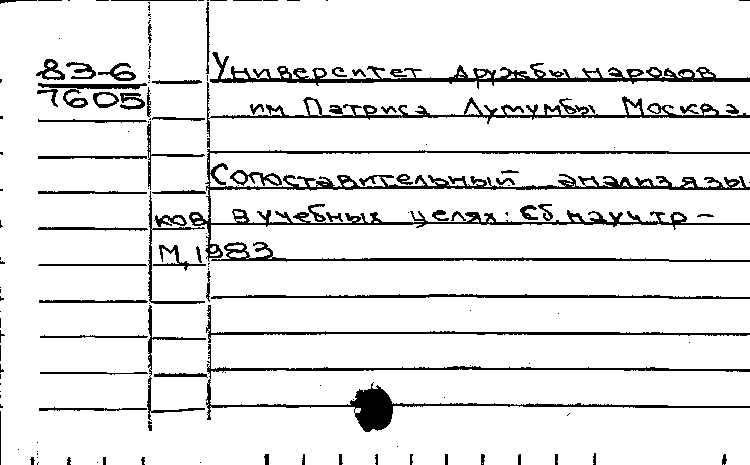 83-6
7605
Университет дружбы народов
им Патриса Лумумбы Москва.
Сопоставительный анализ язы
ков в учебных целях: Сб. науч. тр -
М, 1983